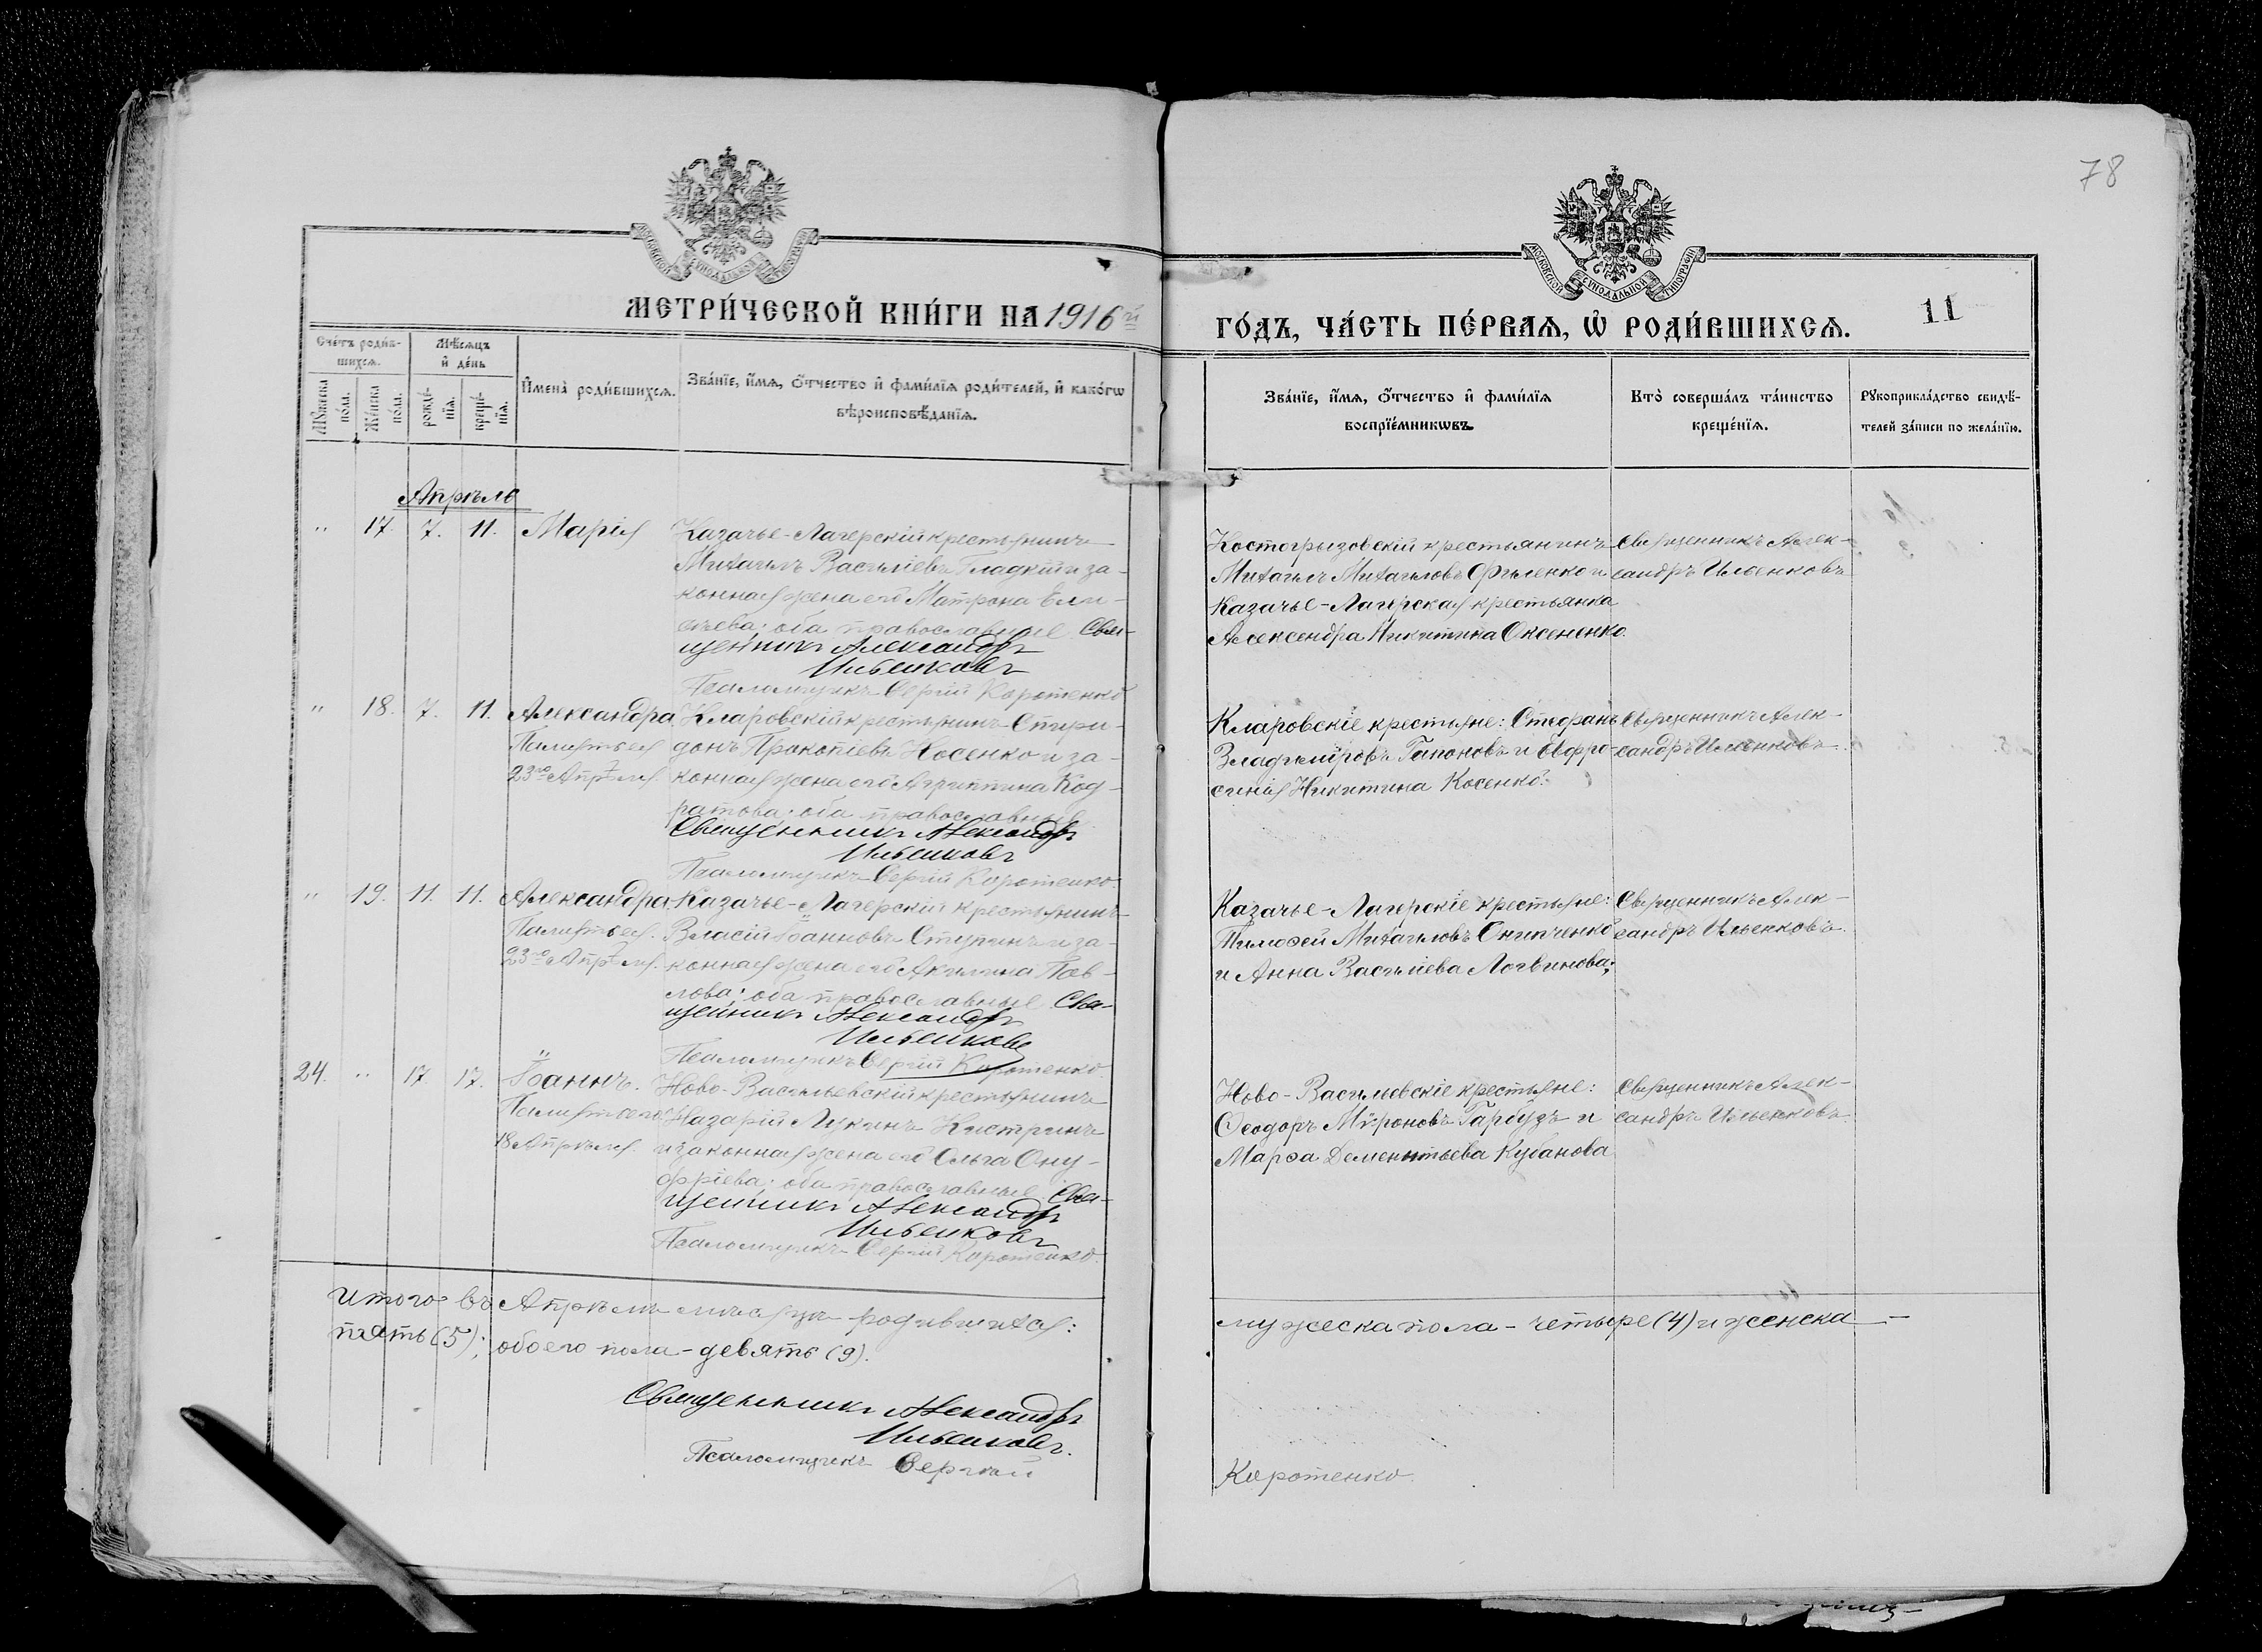 78
МОСКОВСКОЙ СѴНОДАЛЬНОЙ ТИПОГРАФІИ
МОСКОВСКОЙ СѴНОДАЛЬНОЙ ТИПОГРАФІИ
МЕТРИ́ЧЕСКОЙ КНИ́ГИ НА 1916й
ГО́ДЪ, ЧА́СТЬ ПЕ́РВАѦ, Ѡ РОДИ́ВШИХСѦ.
11
Сче́тъ роди́в-
шихсѧ.
Мꙋжеска по́ла.
Же́нска по́ла.
Мѣ́сѧцъ
и҆ де́нь
рожде́-
нїѧ.
креще́-
нїѧ.
И҆мена̀ роди́вшихсѧ.
Зва́нїе, и҆́мѧ, ѻ҆́тчество и҆ фами́лїѧ роди́телей, и҆ како́гѡ
вѣроисповѣ́данїѧ.
Зва́нїе, и҆́мѧ, ѻ҆́тчество и҆ фами́лїѧ
воспрїе́мникѡвъ.
Кто̀ соверша́лъ та́инство
креще́нїѧ.
Рꙋкоприкла́дство свидѣ́-
телей за́писи по жела́нїю.
Апрѣль
" 17. 7. 11. Марія
Казачье-Лагерскій крестьянинъ
Михаилъ Василіевъ Гладкій и за-
конная жена его Матрона Ели-
сѣева; оба православные. Свя-
щенникъ Александръ
Ильенковъ
Псаломщикъ Сергій Коротенко
Костогрызовскій крестьянинъ
Михаилъ Михаиловъ Филенко и
Казачье-Лагерская крестьянка
Александра Никитина Оксененко.
Священникъ Алек-
сандръ Ильенковъ
" 18. 7. 11. Александра
Память ея
23го Апрѣля.
Кларовскій крестьянинъ Спири-
донъ Прокопіевъ Носенко и за-
конная жена его Агриппина Код-
ратова; оба православные
Священникъ Александръ
Ильенковъ
Псаломщикъ Сергій Коротенко.
Кларовскіе крестьяне: Стефанъ
Владиміровъ Гапоновъ и Евфро-
синія Никитина Косенко.
Священникъ Алек-
сандръ Ильенковъ
" 19. 11. 11. Александра
Память ея.
23го Апрѣля.
Казачье-Лагерскій крестьянинъ
Власій Іоанновъ Ступинъ и за-
конная жена его Акилина Пав-
лова; оба православные. Свя-
щенникъ Александръ
Ильенковъ
Псаломщикъ Сергій Коротенко
Казачье-Лагерскіе крестьяне:
Тимоѳей Михаиловъ Онипченко
и Анна Василіева Логвинова;
Священникъ Алек-
сандръ Ильенковъ
24. " 17 17. Іоаннъ.
Память его
18 Апрѣля.
Ново-Васильевскій крестьянинъ
Назарій Лукинъ Кистринъ
и законная жена его Ольга Ону-
фріева; оба православные. Свя-
щенникъ Александръ
Ильенковъ
Псаломщикъ Сергій Коротенко.
Ново-Васильевскіе крестьяне:
Ѳеодоръ Мѵроновъ Гарбузъ и
Марѳа Дементьева Кубанова
Священникъ Алек-
сандръ Ильенковъ
Итого въ Апрѣлѣ мѣсяцѣ родившихся:
мужеска пола - четыре (4) и женска -
пять (5); обоего пола - девять (9).
Священникъ Александръ
Ильенковъ.
Псаломщикъ Сергій
Коротенко.